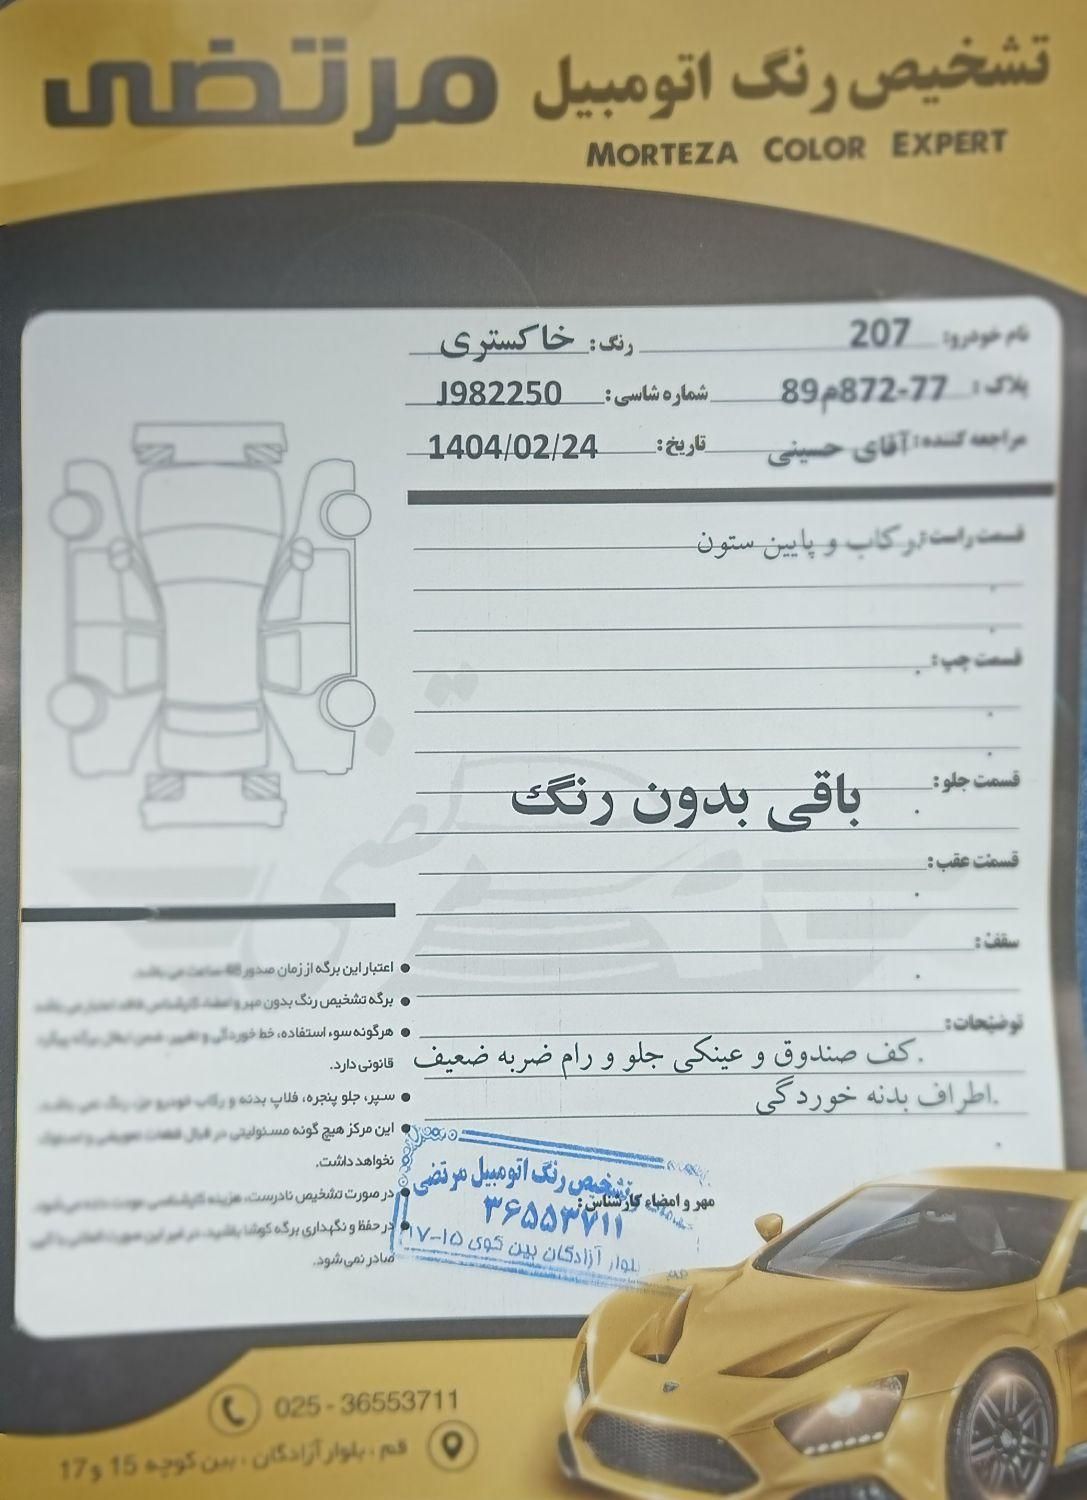 تشخیص رنگ اتومبیل مرتضی
MORTEZA COLOR EXPERT
نام خودرو: 207 رنگ: خاکستری
پلاک: 77-872م89 شماره شاسی: J982250
مراجعه کننده: آقای حسینی تاریخ: 1404/02/24
قسمت راست: رکاب و پایین ستون
قسمت چپ:
قسمت جلو:
باقی بدون رنگ
قسمت عقب:
سقف:
توضیحات:
.کف صندوق و عینکی جلو و رام ضربه ضعیف
.اطراف بدنه خوردگی
● اعتبار این برگه از زمان صدور 48 ساعت می باشد.
● برگه تشخیص رنگ بدون مهر و امضاء کارشناس فاقد اعتبار می باشد
● هرگونه سوء استفاده، خط خوردگی و تغییر، ضمن ابطال برگه پیگرد
قانونی دارد.
● سپر، جلو پنجره، فلاپ بدنه و رکاب خودرو جزء رنگ نمی باشد.
● این مرکز هیچ گونه مسئولیتی در قبال قطعات تعویضی و استوک
نخواهد داشت.
● در صورت تشخیص نادرست، هزینه کارشناسی عودت داده می شود.
● در حفظ و نگهداری برگه کوشا باشید، در غیر این صورت
صادر نمی شود.
مهر و امضاء کارشناس:
تشخیص رنگ اتومبیل مرتضی
۳۶۵۵۳۷۱۱
بلوار آزادگان بین کوی ۱۵-۱۷
025 - 36553711
قم ، بلوار آزادگان ، بین کوچه 15 و 17